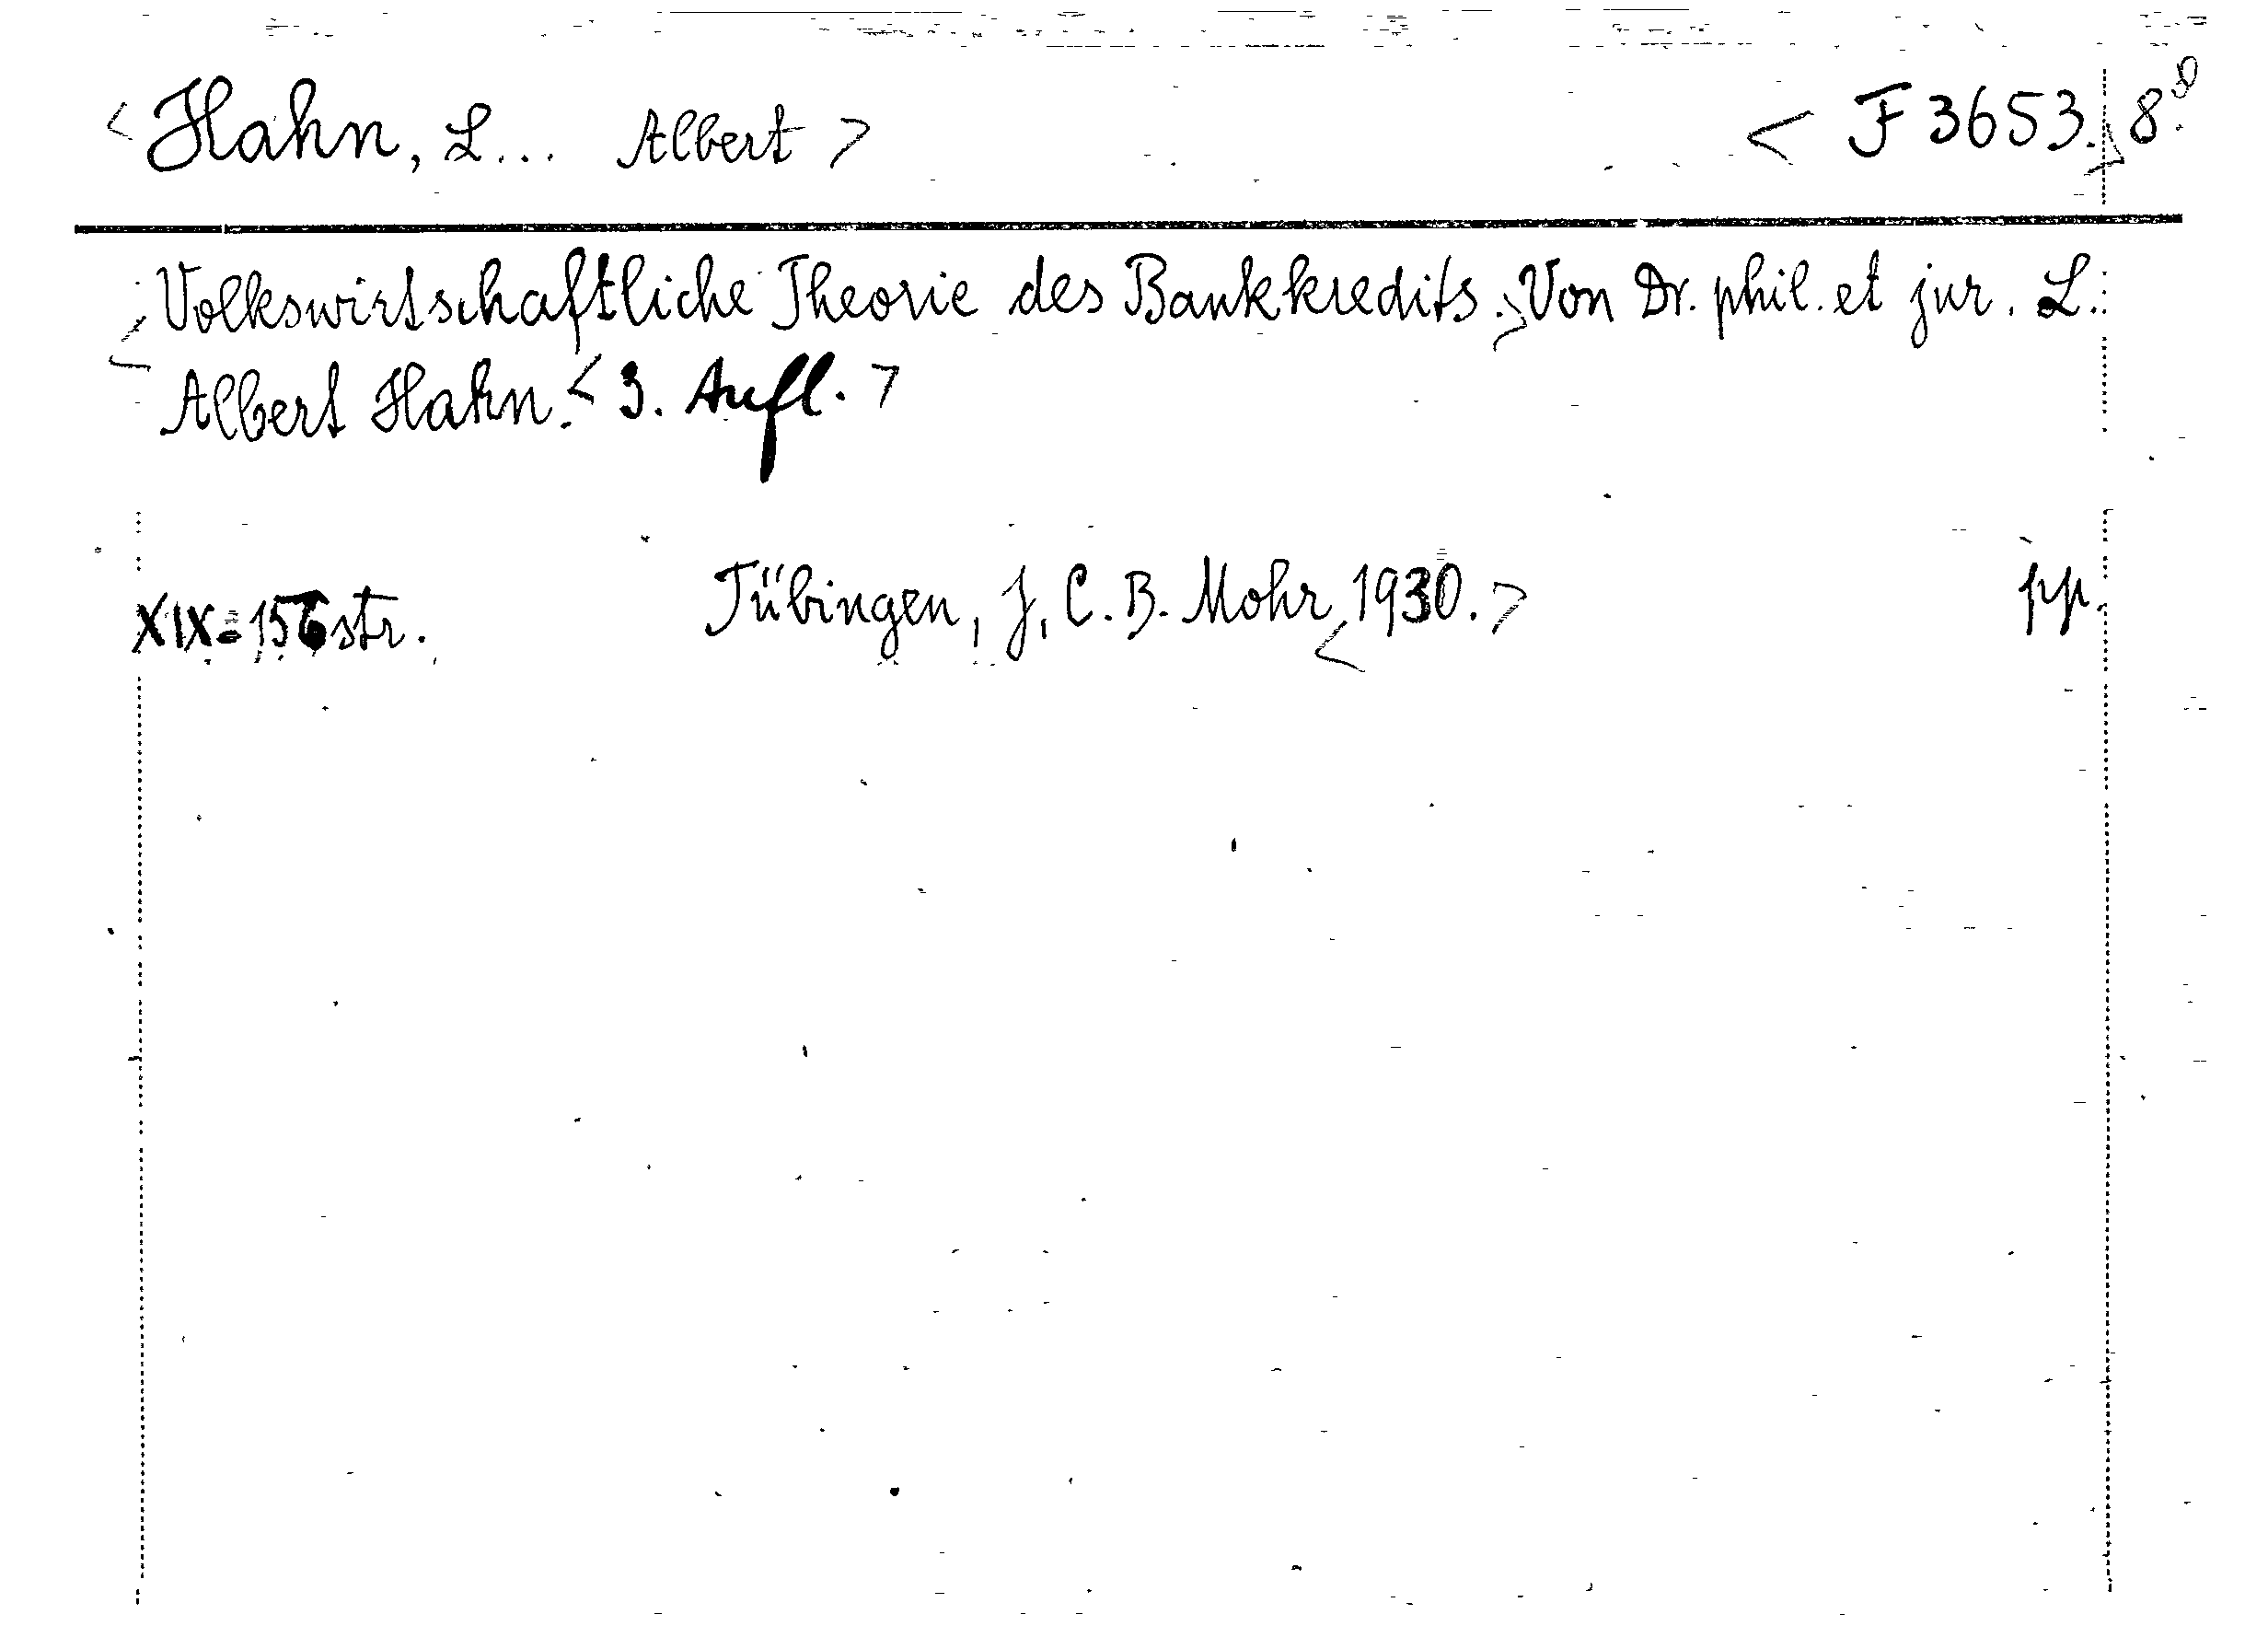 < Hahn, L... Albert > < F 3653. > 8°
< Volkswirtschaftliche Theorie des Bankkredits. > Von Dr. phil. et jur. L.
< Albert Hahn. < 3. Aufl. >
XIX= str. Tübingen, J. C. B. Mohr < 1930. > pp.